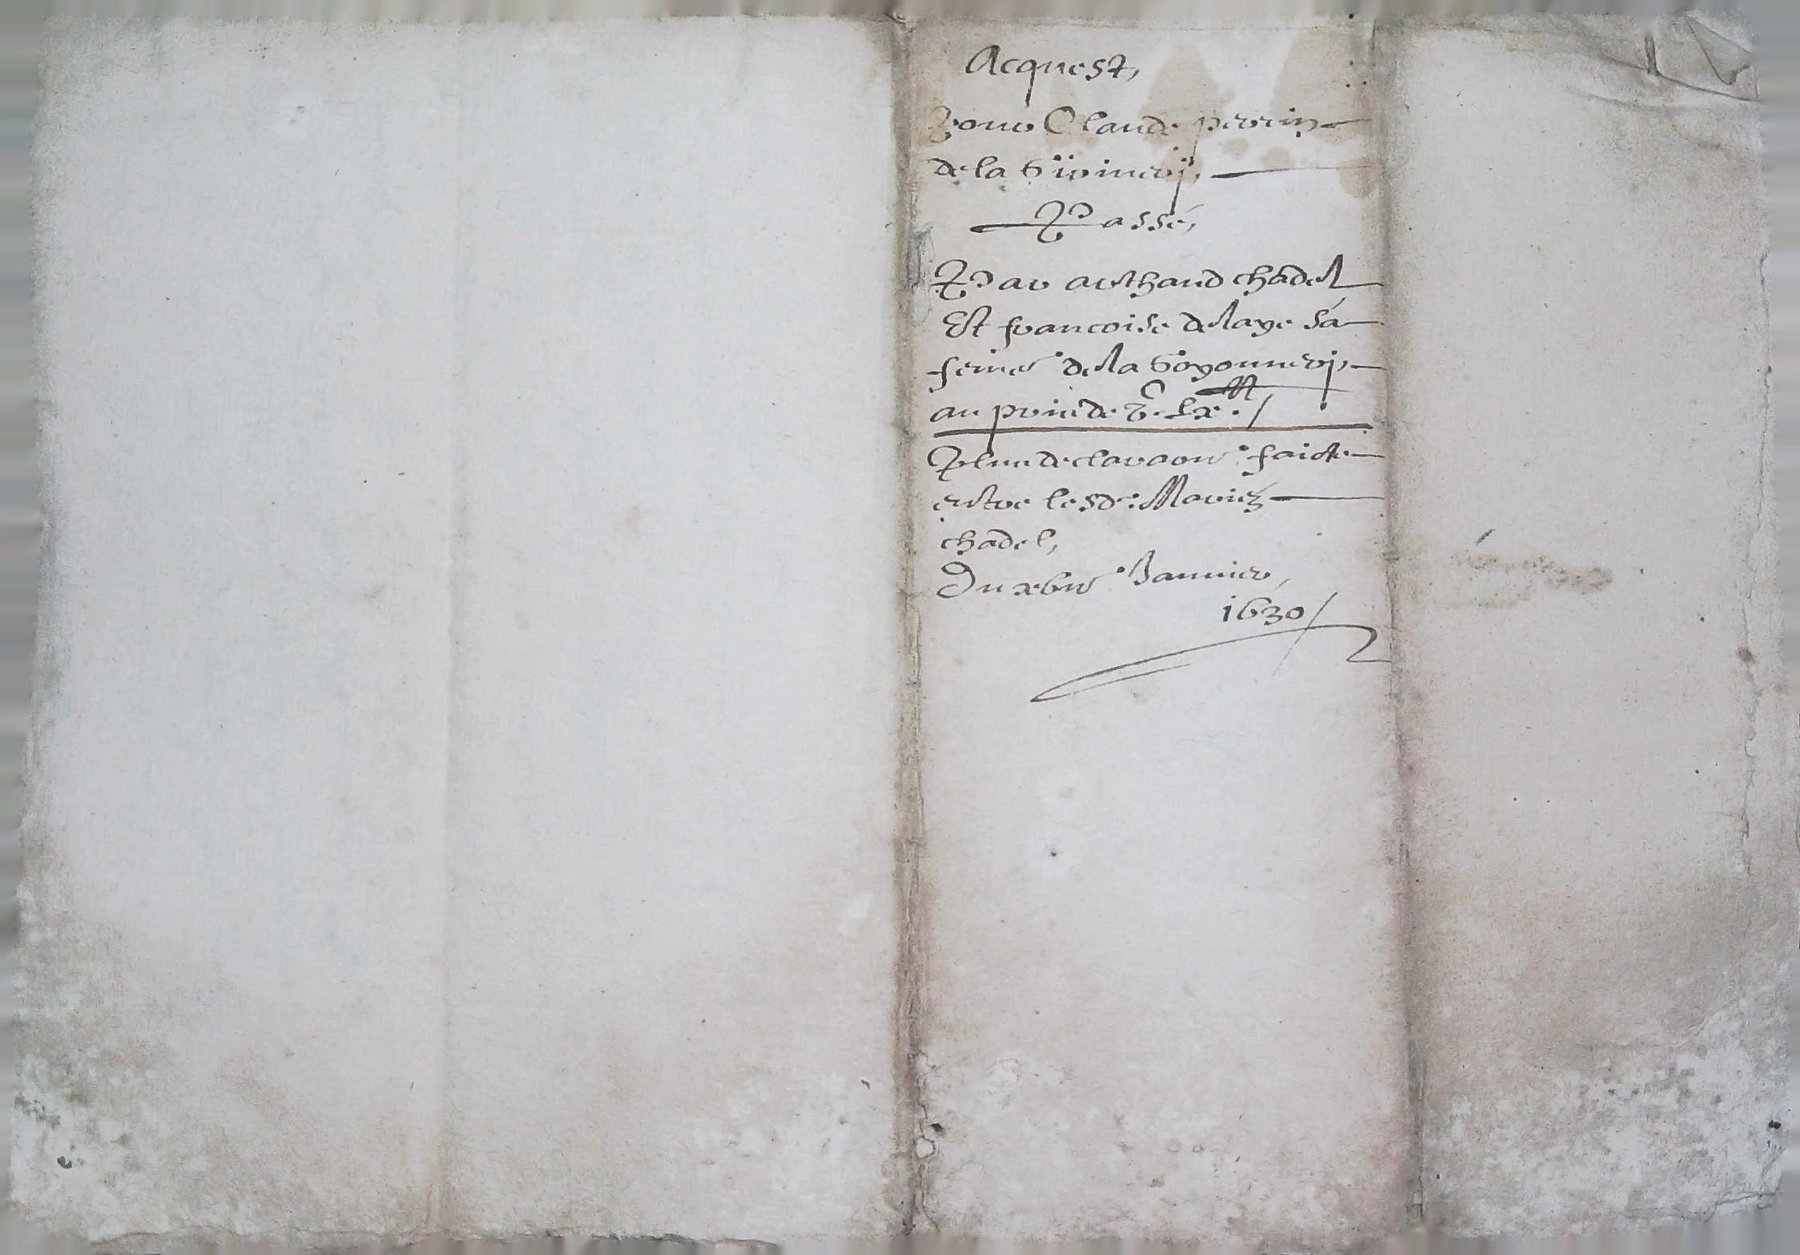 Acquest,
pour Claude perrin
de la Girinery,
Passé,
Par arthaud chadel
Et francoise delaye sa
feme de la Goyonnery,
au pris de
Plus declaraon faicte
entre lesd. Mariez
chadel,
Du xbie Januier,
1630